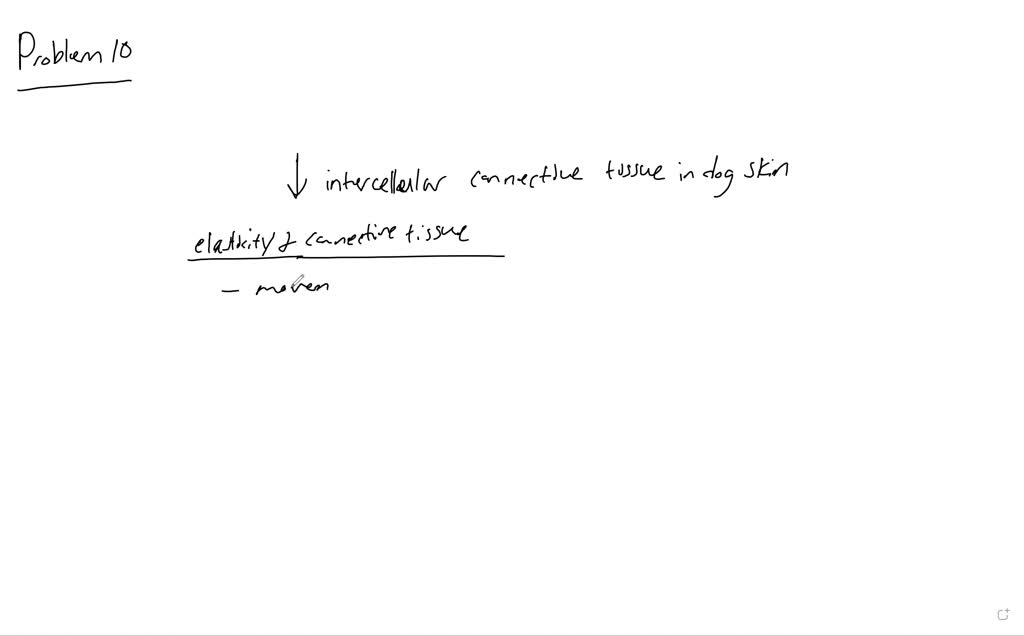 Problem 10
↓ intercellular connective tissue in dog skin
elasticity & connective tissue
– movem